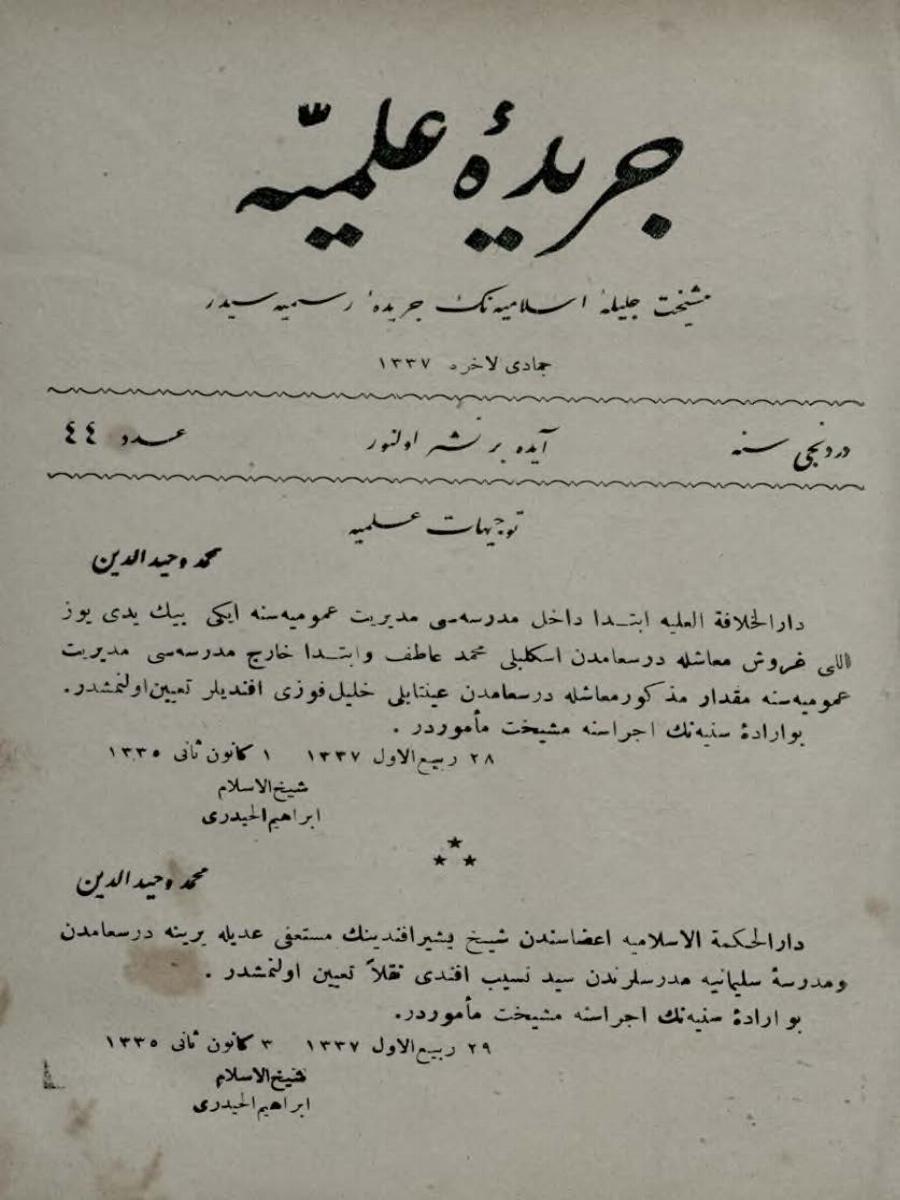 جريدۀ علميّه
مشيخت جليلۀ اسلاميه‌نك جريدۀ رسميه‌سيدر
جمادى لاخره ١٣٣٧
دردنجى سنه آيده بر نشر اولنور عدد ٤٤
توجيهات علميه
محمد وحيد الدين
دارالخلافة العليه ابتدا داخل مدرسه‌سى مديريت عموميه‌سنه ايكى بيك يدى يوز
اللى غروش معاشله درسعامدن اسكليبلى محمد عاطف وابتدا خارج مدرسه‌سى مديريت
عموميه‌سنه مقدار مذكور معاشله درسعامدن عينتابلى خليل فوزى افنديلر تعيين اولنمشدر.
بو ارادۀ سنيه‌نك اجراسنه مشيخت مأموردر .
٢٨ ربيع الاول ١٣٣٧ ١ كانون ثانى ١٣٣٥
شيخ الاسلام
ابراهيم الحيدرى
محمد وحيد الدين
دارالحكمة الاسلاميه اعضاسندن شيخ بشير افندينك مستعفى عديله يرينه درسعامدن
ومدرسۀ سليمانيه مدرسلرندن سيد نسيب افندى نقلاً تعيين اولنمشدر .
بو ارادۀ سنيه‌نك اجراسنه مشيخت مأموردر.
٢٩ ربيع الاول ١٣٣٧ ٣ كانون ثانى ١٣٣٥
شيخ الاسلام
ابراهيم الحيدرى